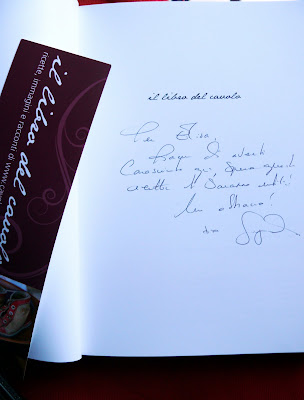 il libro del cavolo
Per Elisa,
di averti
qui, spero queste
ricette ti saranno utili!
Un abbraccio!
il libro del cavolo
ricette, immagini e racconti di www.